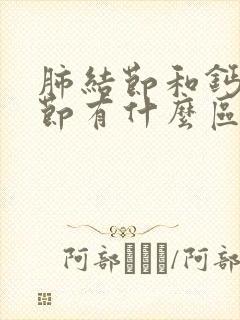 肺結節和鈣
節有什麼區
阿部/阿部